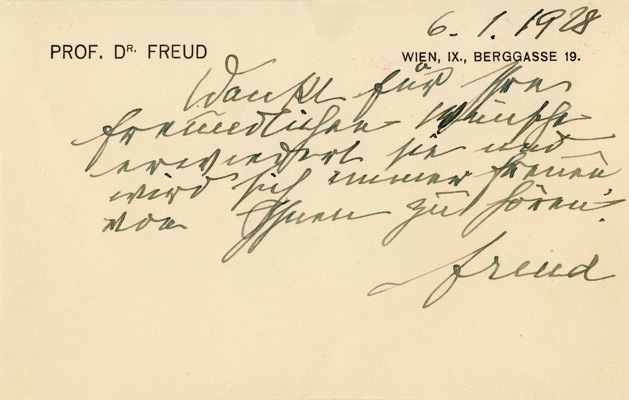 6. 1. 1928
PROF. DR. FREUD
WIEN, IX., BERGGASSE 19.
Dankt für Ihre
freundlichen Wünsche
erwiedert sie und
wird sich immer freuen
von Ihnen zu hören.
Freud